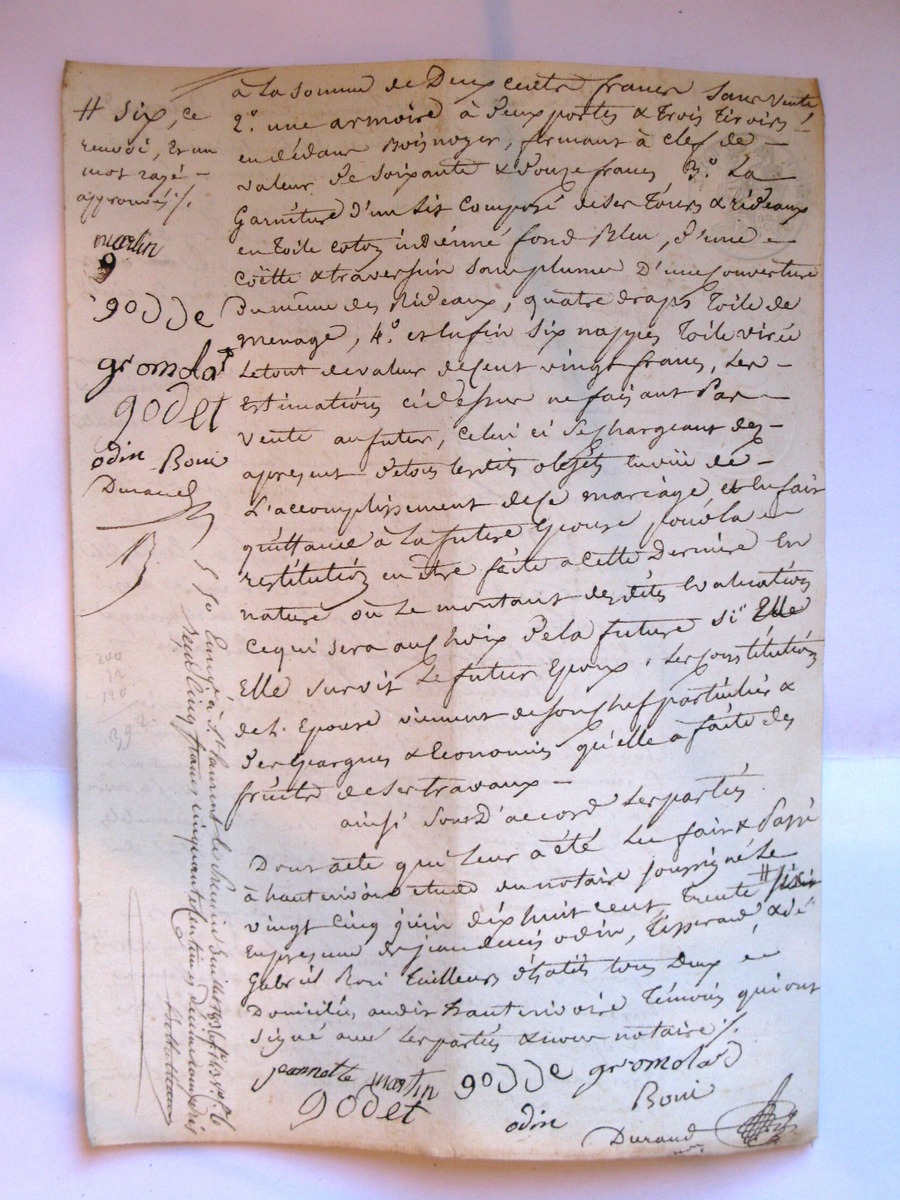 à la somme de Deux cents francs sans vente
2° une armoire à deux portes & trois tiroirs
en dédans Bois noyer, fermant à clef de —
valeur de soixante & douze francs 3° La
Garniture d'un Lit composé de ses tours & rideaux
en toile coton indiénne fond Bleu, d'une —
Coëtte & traversin sans plumes D'une Couverture
Du même des Rideaux, quatre draps toile de
menage, 4° et Enfin Six nappes toile
Le tout de valeur de Cent vingt francs, Les —
Estimations ci dessus ne faisant Pas —
Vente au futur, Celui ci se Chargeant dez —
apresent de tous les dits objets
L'accomplissement de Ce mariage, et En fait
quittance à La future Epouse pour la —
restitution en être faite a Cette Derniere En
nature où Le montant des dites Evaluations
Ce qui sera au Choix De la future si Elle
Elle survit Le futur Epoux. Les Constitutions
de l. Epouse viennent de son Chef particulier &
Des Epargnes & Economies qu'elle à faites des
fruits de ses travaux —
ainsi Sont D'accord Les parties.
Dont acte qui Leur a été Lu fait & Passé
à hauterivoire etude du notaire soussigné Le
vingt Cinq juin dix huit Cent trente #
En presence de jean Louis odin, tisserand, & de
Gabriel Boni tailleurs d'habits tous Deux —
Domiciliés audit hauterivoire témoins qui ont
signé avec Les parties & nous notaire ./.
jeannette martin godde gromolard
godet odin Boni
Durand
# Six, ce
renvoi, Et un
mot rayé —
approuvés ./.
martin
godde
gromolat
godet
odin Boni
Durand
200
72
120
392
Enregé à St Laurent le
Reçu Cinq francs cinquante centimes